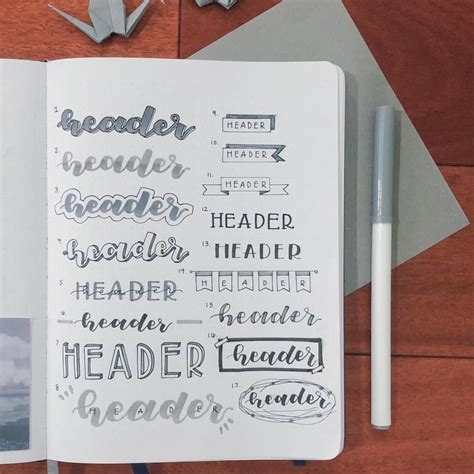 1. header
2. header
3. header
4. header
5. HEADER header
6. header
7. HEADER
8. header HEADER
9. HEADER
10. HEADER
11. HEADER
12. HEADER
13. HEADER
14. HEADER
15. header
16. header
17. header